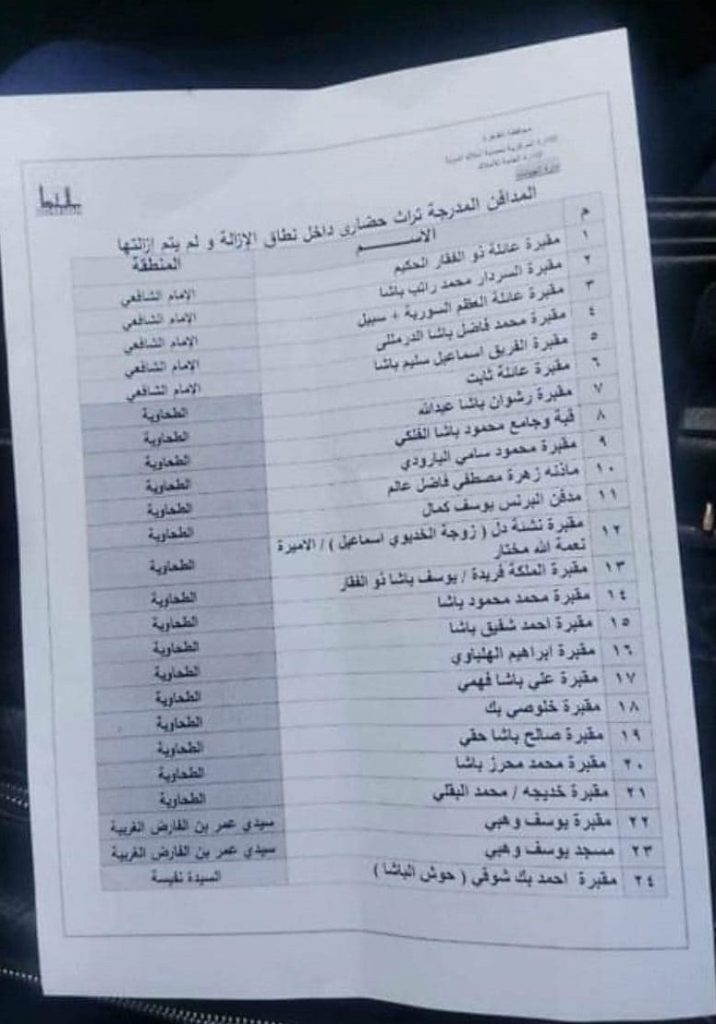 محافظة القاهرة
الادارة المركزية لحماية املاك الدولة
الادارة العامة للأملاك
المدافن المدرجة تراث حضارى داخل نطاق الإزالة و لم يتم ازالتها
م الاســـــم المنطقة
١ مقبرة عائلة ذو الفقار الحكيم الإمام الشافعي
٢ مقبرة السردار محمد راتب باشا الإمام الشافعي
٣ مقبرة عائلة العظم السورية + سبيل الإمام الشافعي
٤ مقبرة محمد فاضل باشا الدرمللى الإمام الشافعي
٥ مقبرة الفريق اسماعيل سليم باشا الإمام الشافعي
٦ مقبرة عائلة ثابت الطحاوية
٧ مقبرة رشوان باشا عبدالله الطحاوية
٨ قبة وجامع محمود باشا الفلكي الطحاوية
٩ مقبرة محمود سامي البارودي الطحاوية
١٠ مأذنه زهرة مصطفى فاضل عالم الطحاوية
١١ مدفن البرنس يوسف كمال الطحاوية
١٢ مقبرة نشئة دل ( زوجة الخديوي اسماعيل ) / الاميرة
نعمة الله مختار الطحاوية
١٣ مقبرة الملكة فريدة / يوسف باشا ذو الفقار الطحاوية
١٤ مقبرة محمد محمود باشا الطحاوية
١٥ مقبرة احمد شفيق باشا الطحاوية
١٦ مقبرة ابراهيم الهلباوي الطحاوية
١٧ مقبرة علي باشا فهمي الطحاوية
١٨ مقبرة خلوصي بك الطحاوية
١٩ مقبرة صالح باشا حقي الطحاوية
٢٠ مقبرة محمد محرز باشا الطحاوية
٢١ مقبرة خديجه / محمد البقلي الطحاوية
٢٢ مقبرة يوسف وهبي سيدي عمر بن الفارض الغربية
٢٣ مسجد يوسف وهبي سيدي عمر بن الفارض الغربية
٢٤ مقبرة احمد بك شوقي ( حوش الباشا ) السيدة نفيسة